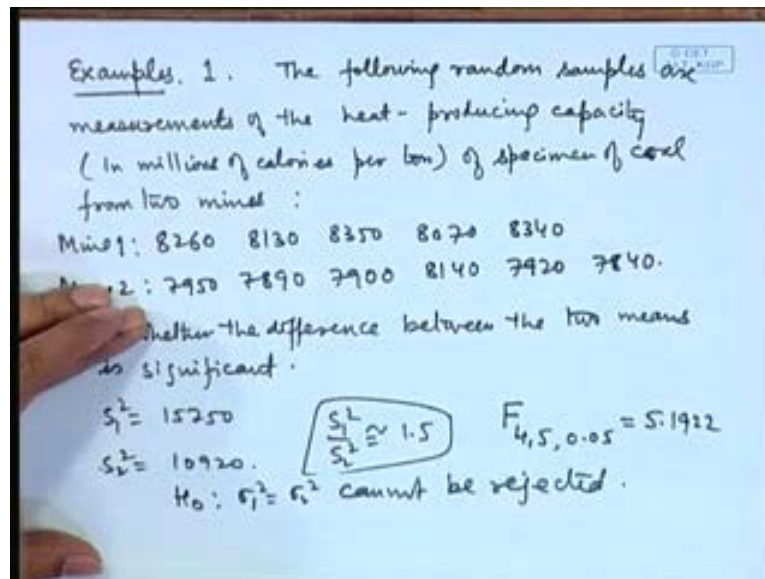 Examples. 1. The following random samples are
measurements of the heat-producing capacity
(in millions of calories per ton) of specimen of coal
from two mines :
Mine 1: 8260 8130 8350 8070 8340
2: 7950 7890 7900 8140 7920 7840.
whether the difference between the two means
is significant.
S₁² = 15750 S₁²/S₂² ≅ 1.5 F₄,₅,₀.₀₅ = 5.1922
S₂² = 10920.
H₀: σ₁² = σ₂² cannot be rejected.